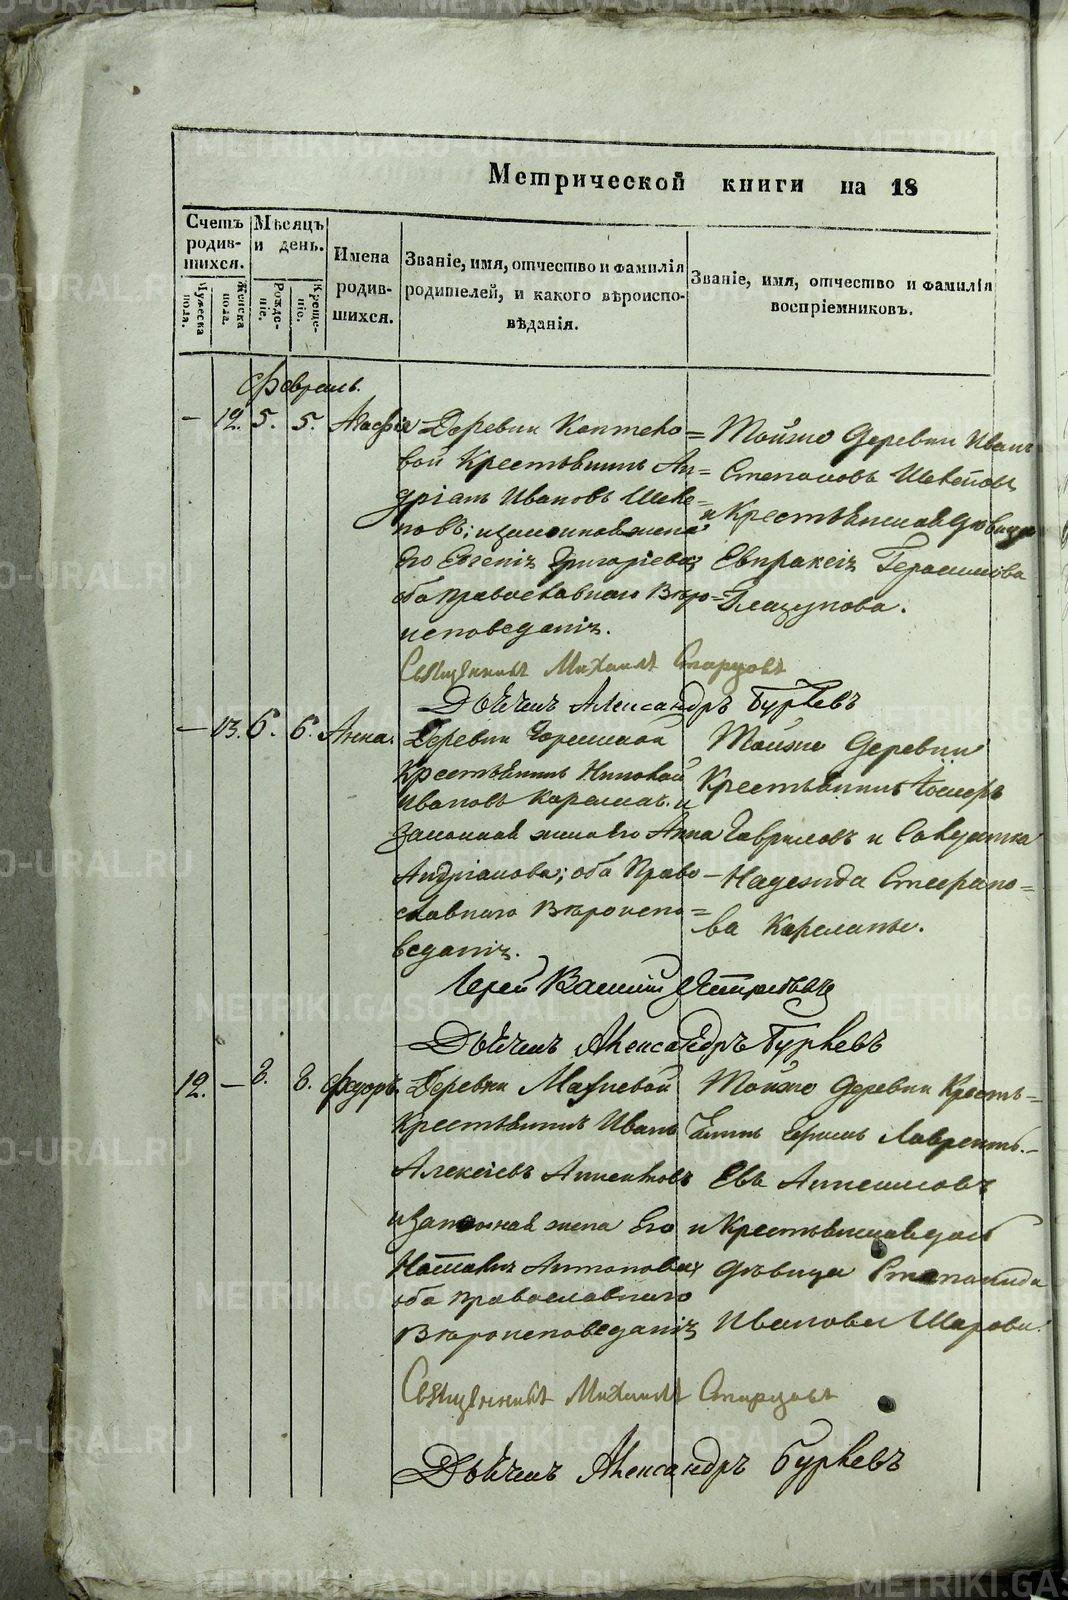 Метрической книги на 18
Счетъ родив-шихся.
Мѣсяцъ и день.
Имена родив-шихся.
Званіе, имя, отчество и фамилія родителей, и какого вѣроиспо-вѣданія.
Званіе, имя, отчество и фамилія воспріемниковъ.
Мужеска пола.
Женска пола.
Рожде-ніе.
Креще-ніе.
Февраль.
— 12. 5. 5. Агафія
Деревни Коптело=
вой Крестьянинъ Ан=
дріанъ Ивановъ Шве=
цовъ; и законная жена
Его Евгенія Григоріева;
оба православнаго Вѣро=
исповеданія.
Тойже деревни Иванъ
Степановъ Швецовъ
и Крестьянская девица
Евпраксія Герасимова
Глазунова.
Священникъ Михаилъ Старцовъ
Дьячекъ Александръ Бурhевъ
— 13. 6. 6. Анна.
Деревни
Крестьянинъ Николай
Ивановъ Карелинъ. и
Законная жена его Анна
Андріанова; оба Право-
славнаго Вѣроиспо=
веданія.
Тойже деревни
Крестьянинъ
Гавриловъ и Солдатка
Надежда Стефано=
ва Карелина.
Іерей Василій
Дьячекъ Александръ
12. — 8. 8. Федоръ.
Деревни
Крестьянинъ Иванъ
Алексѣевъ
и законная жена Его
Наталья Антонова;
оба православнаго
Вѣроисповеданія
Тойже деревни Кресть=
янинъ Лаврентъ-
евъ
и Крестьянская дочь
дѣвица Степанида
Иванова Шарова.
Священникъ Михаилъ Старцовъ
Дьячекъ Александръ
METRIKI.GASO-URAL.RU